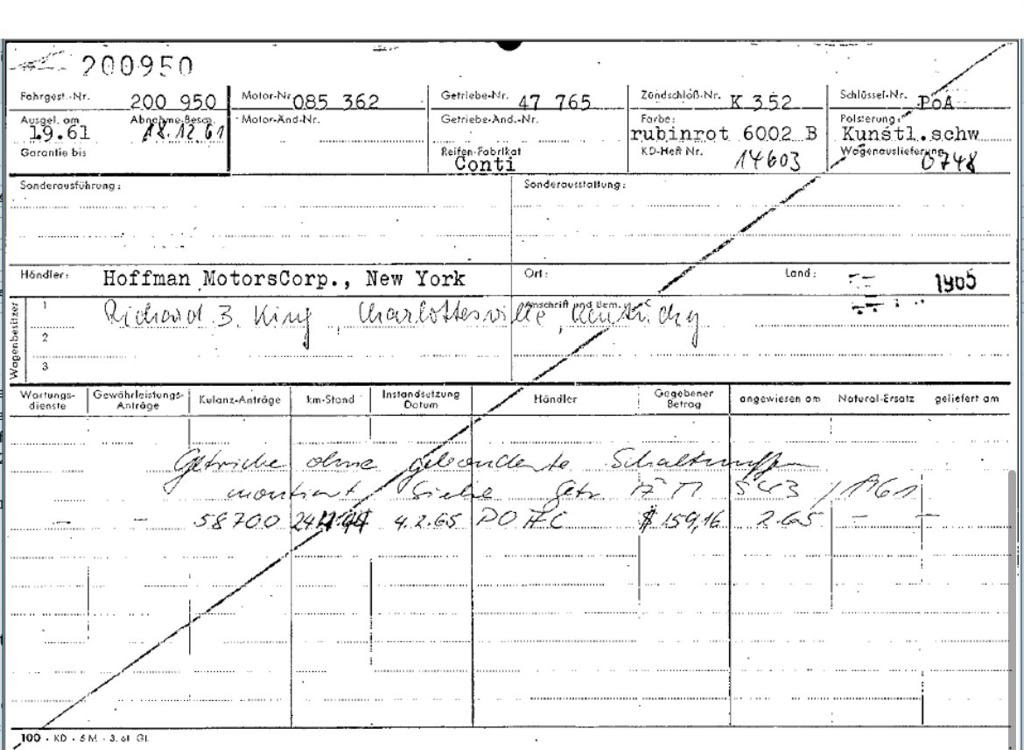 200950
Fahrgest.-Nr. 200 950 Motor-Nr. 085 362 Getriebe-Nr. 47 765 Zündschloß-Nr. K 352 Schlüssel-Nr. PoA
Ausgel. am 19.61 Abnahme-Besch. 18.12.61 Motor-Änd-Nr. Getriebe-Änd.-Nr. Farbe: rubinrot 6002 B Polsterung: Kunstl.schw
Garantie bis Reifen-Fabrikat Conti KD-Heft Nr. 14603 Wagenauslieferung 0748
Sonderausführung: Sonderausstattung:
Händler: Hoffman MotorsCorp., New York Ort: Land: 1905
Wagenbesitzer Anschrift und Bem.
1 Richard 3. King, Charlottesville,
2
3
Wartungs-dienste Gewährleistungs-Anträge Kulanz-Anträge km-Stand Instandsetzung Datum Händler Gegebener Betrag angewiesen am Natural-Ersatz geliefert am
Getriebe ohne Schaltmuffen
montiert, Siehe Getr. 543 / 1961
– – 58700 4.2.65 PO $ 159,16 2.65 – –
100 · KD · 5 M · 3. 61 Gl.